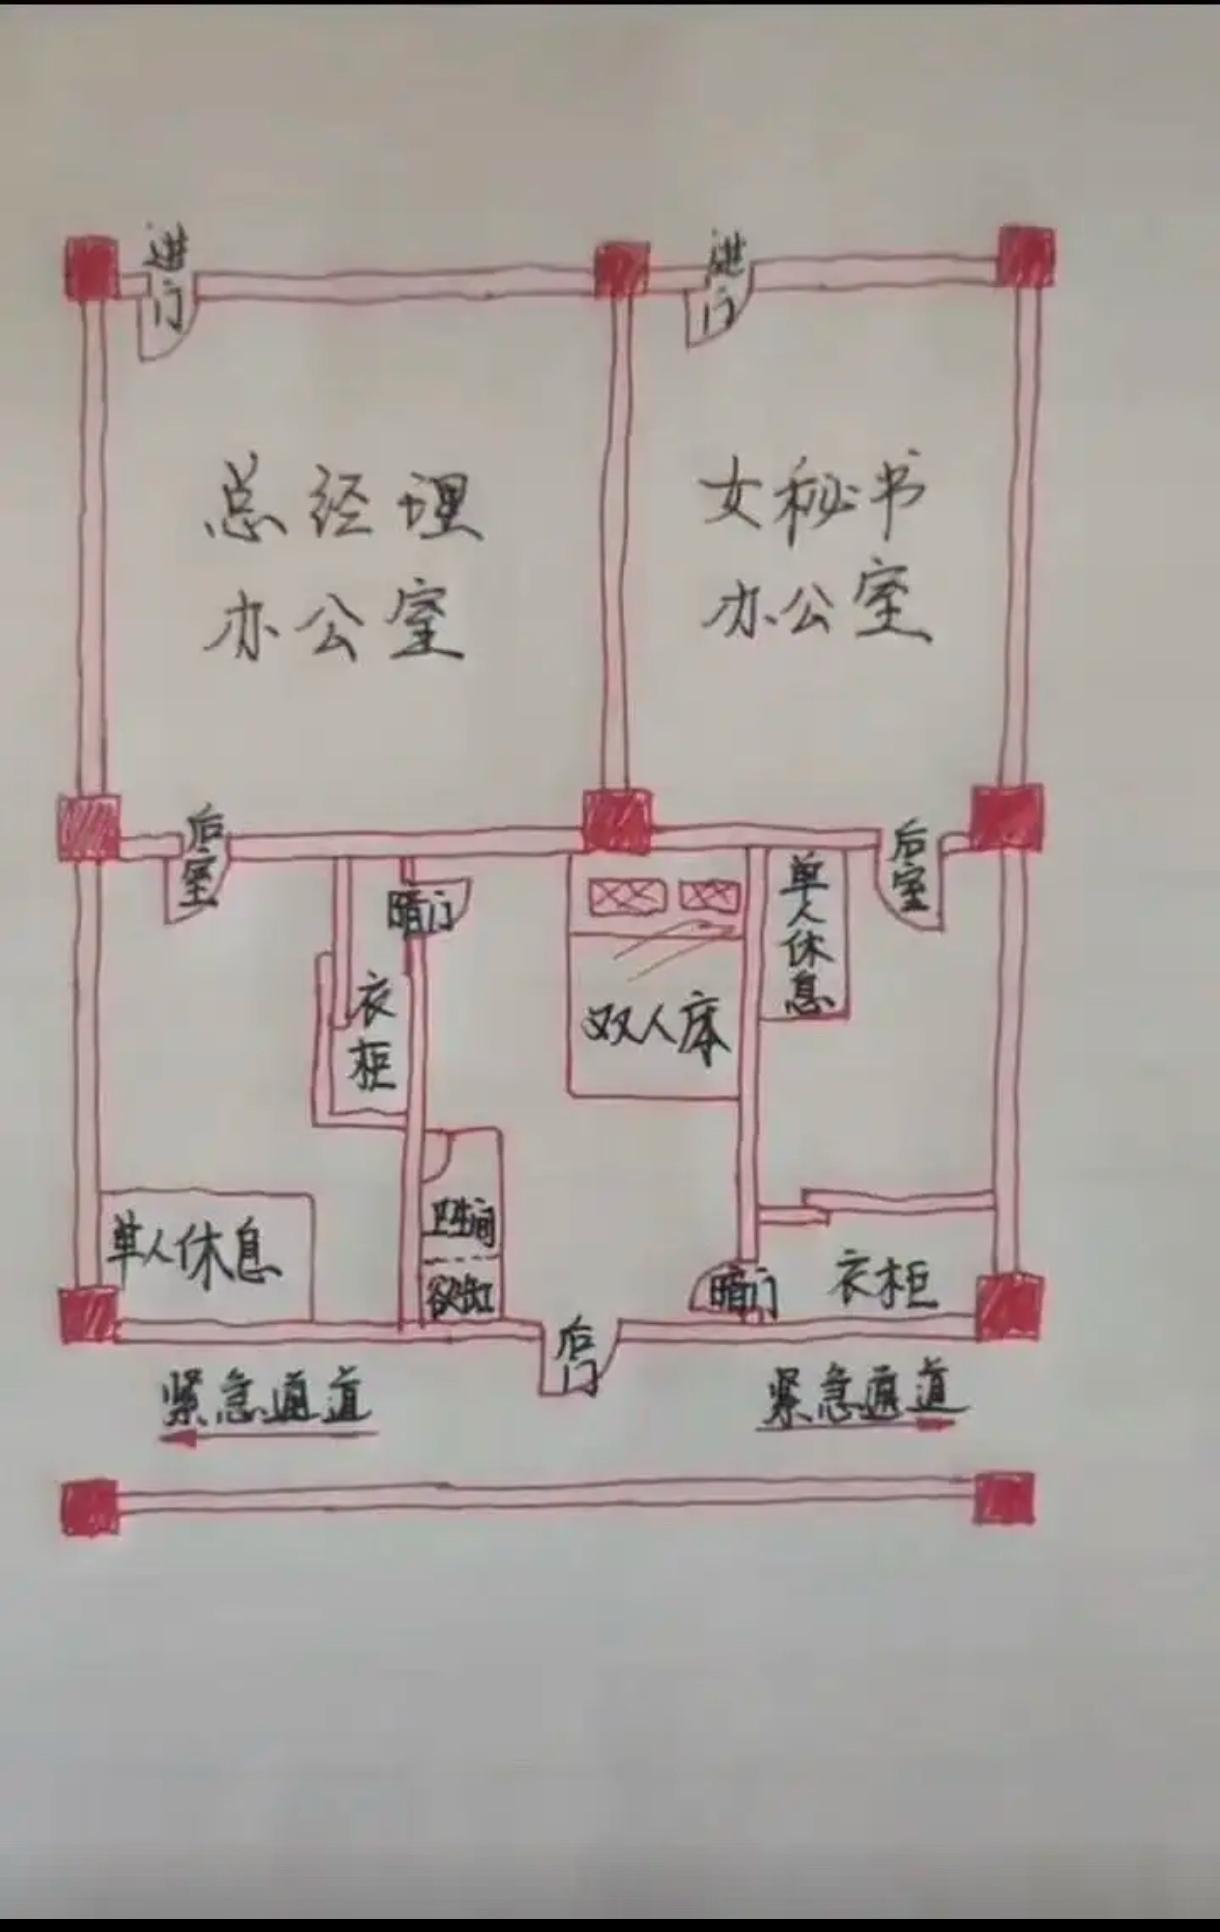 进门
进门
总经理
办公室
女秘书
办公室
后室
后室
暗门
单人休息
衣柜
双人床
卫生间
浴缸
单人休息
暗门
衣柜
后门
紧急通道
紧急通道